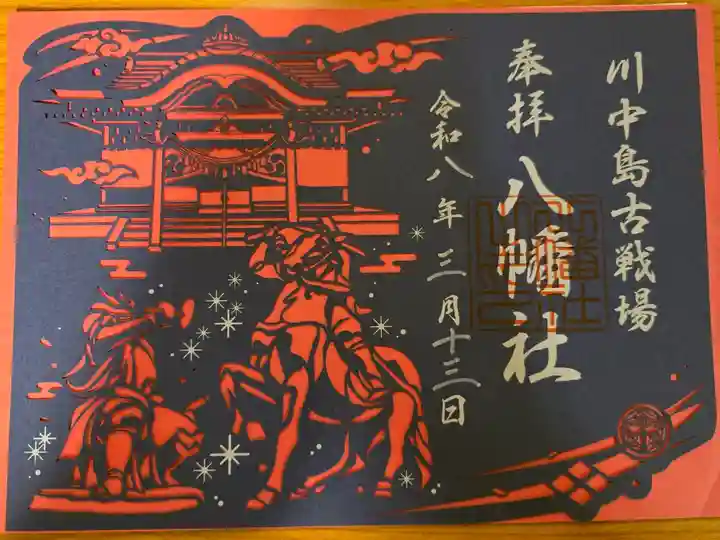 川中島古戦場
奉拝 八幡社
令和八年 三月十三日